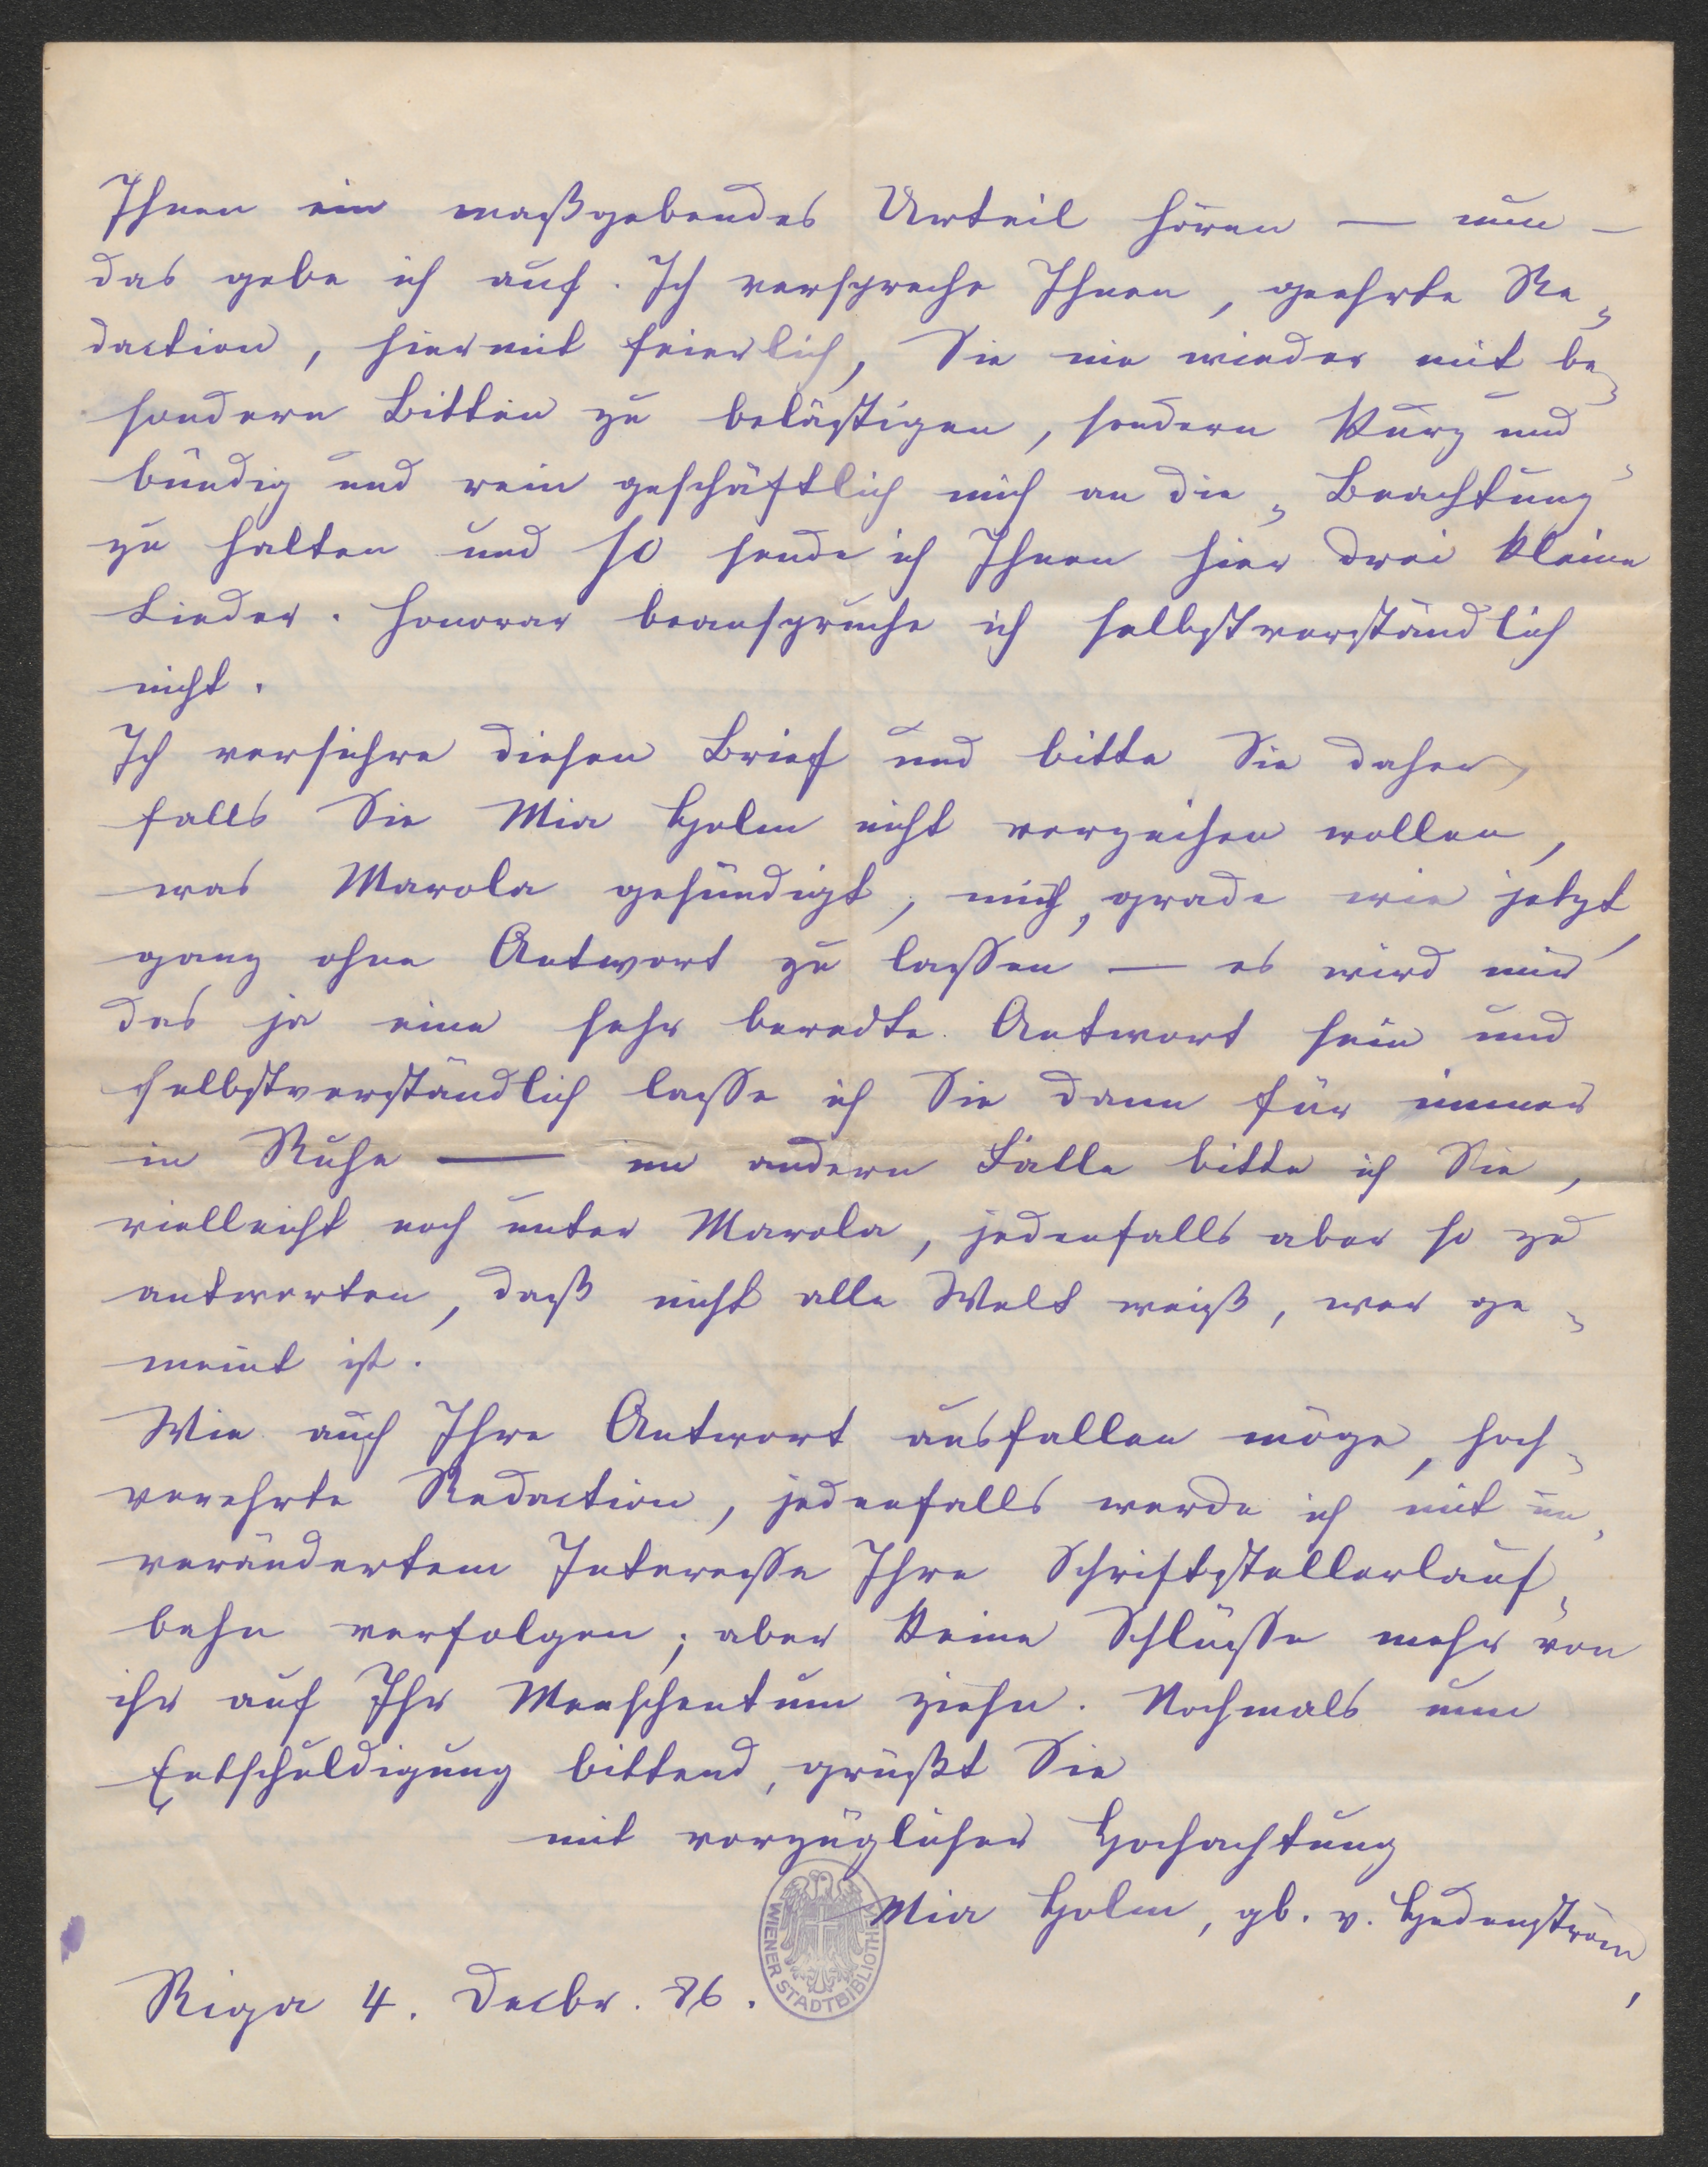 Ihnen ein maßgebendes Urteil hören — nun —
das gebe ich auf. Ich verspreche Ihnen, geehrte Re„
daction, hiermit feierlich, Sie nie wieder mit be„
sondern Bitten zu belästigen, sondern kurz und
bündig und rein geschäftlich mich an die „Beachtung"
zu halten und so sende ich Ihnen hier drei kleine
Lieder. Honorar beanspruche ich selbstverständlich
nicht.
Ich versichre diesen Brief und bitte Sie daher,
falls Sie Mia Holm nicht verzeihen wollen,
was Marola gesündigt, mich, grade wie jetzt,
ganz ohne Antwort zu lassen — es wird mir
das ja eine sehr beredte Antwort sein und
selbstverständlich lasse ich Sie dann für immer
in Ruhe — im andern Falle bitte ich Sie,
vielleicht noch unter Marola, jedenfalls aber so zu
antworten, daß nicht alle Welt weiß, wer ge„
meint ist.
Wie auch Ihre Antwort ausfallen möge, hoch„
verehrte Redaction, jedenfalls werde ich mit un„
verändertem Interesse Ihre Schriftstellerlauf„
bahn verfolgen; aber keine Schlüsse mehr von
ihr auf Ihr Menschentum ziehn. Nochmals um
Entschuldigung bittend, grüßt Sie
mit vorzüglicher Hochachtung
Mia Holm, gb. v. Hedenström,
Riga 4. Decbr. 86.
WIENER STADTBIBLIOTHEK